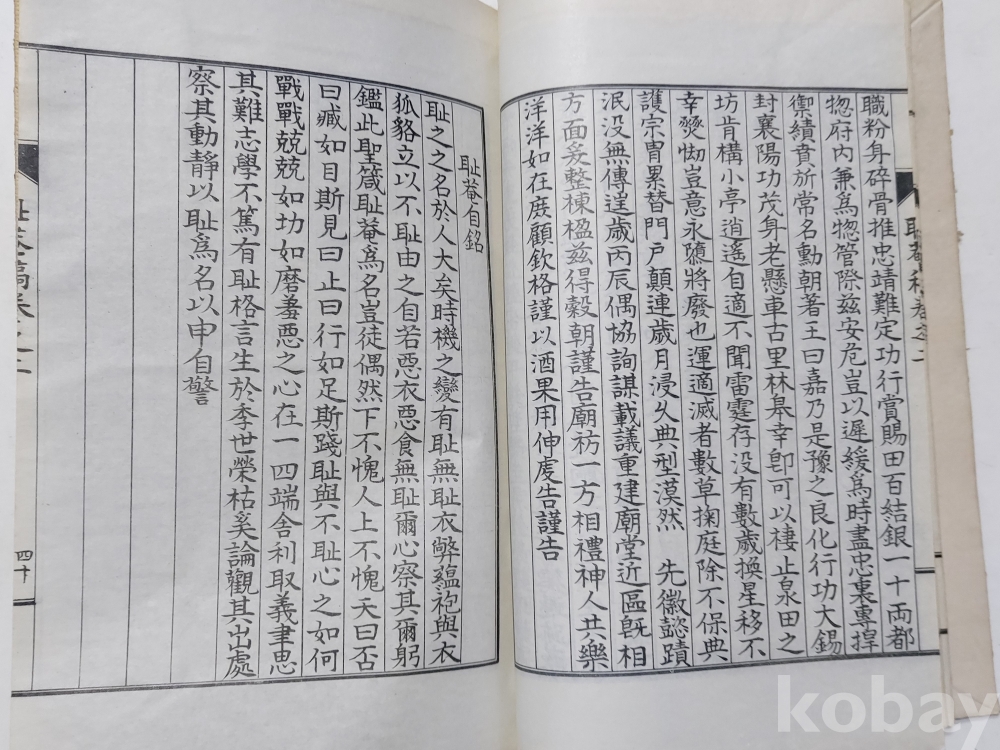 職粉身碎骨推忠靖難定功行賞賜田百結銀一十両都
惚府內兼爲惚管際茲安危豈以遲緩爲時盡忠裏專捍
禦績賁於常名勳朝著王曰嘉乃是豫之良化行功大錫
封襄陽功茂身老懸車古里林皋幸卽可以棲止泉田之
坊肯構小亭逍遥自適不聞雷霆存没有數歲換星移不
幸燹㤼豈意永隳將廢也運適滅者數草掬庭除不保典
護宗胄累替門户顛連歲月浸久典型漠然 先徽懿蹟
泯没無傳逞歲丙辰偶協詢謀載議重建廟堂近區旣相
方面爰整棟楹茲得穀朝謹告廟祊一方相禮神人共樂
洋洋如在庶顧欽格謹以酒果用伸虔告謹告
耻菴自銘
耻之之名於人大矣時機之變有耻無耻衣弊蘊袍與衣
狐貉立以不耻由之自若惡衣惡食無耻爾心察其爾躬
鑑此聖箴耻菴爲名豈徒偶然下不愧人上不愧天曰否
曰臧如目斯見曰止曰行如足斯踐耻與不耻心之如何
戰戰兢兢如切如磨羞惡之心在一四端舍利取義聿思
其難志學不篤有耻格言生於季世榮枯奚論觀其出處
察其動靜以耻爲名以申自警
四十
kobay